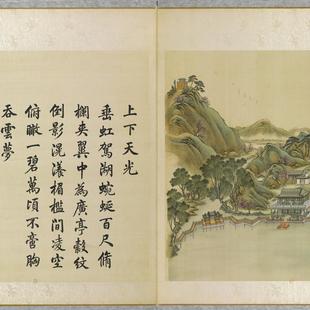 上下天光
垂虹駕湖蜿蜒百尺脩
欄夾翼中為廣亭縠紋
倒影滉瀁楣檻間凌空
俯瞰一碧萬頃不啻胸
吞雲夢